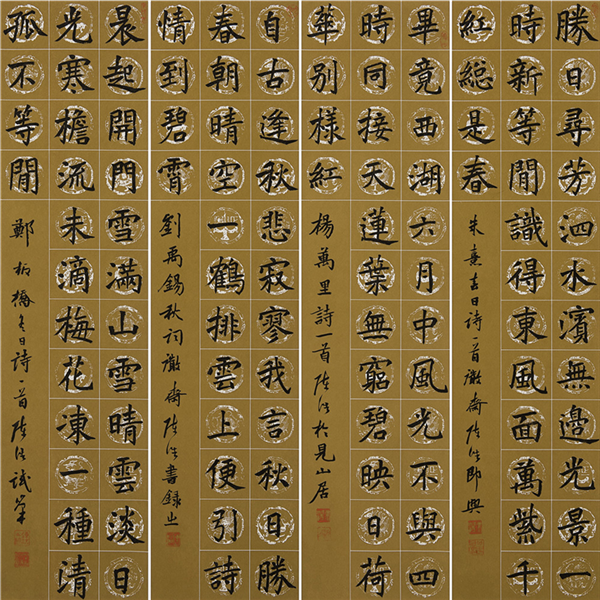 勝日尋芳泗水濱無邊光景一
時新等閒識得東風面萬紫千
紅緫是春
朱熹春日詩一首 齋 即興
畢竟西湖六月中風光不與四
時同接天蓮葉無窮碧映日荷
華別樣紅
楊萬里詩一首 於見山居
自古逢秋悲寂寥我言秋日勝
春朝晴空一鶴排雲上便引詩
情到碧霄
劉禹錫秋詞 齋 書錄之
晨起開門雪滿山雪晴雲淡日
光寒檐流未滴梅花凍一種清
孤不等閒
鄭板橋冬日詩一首 試筆